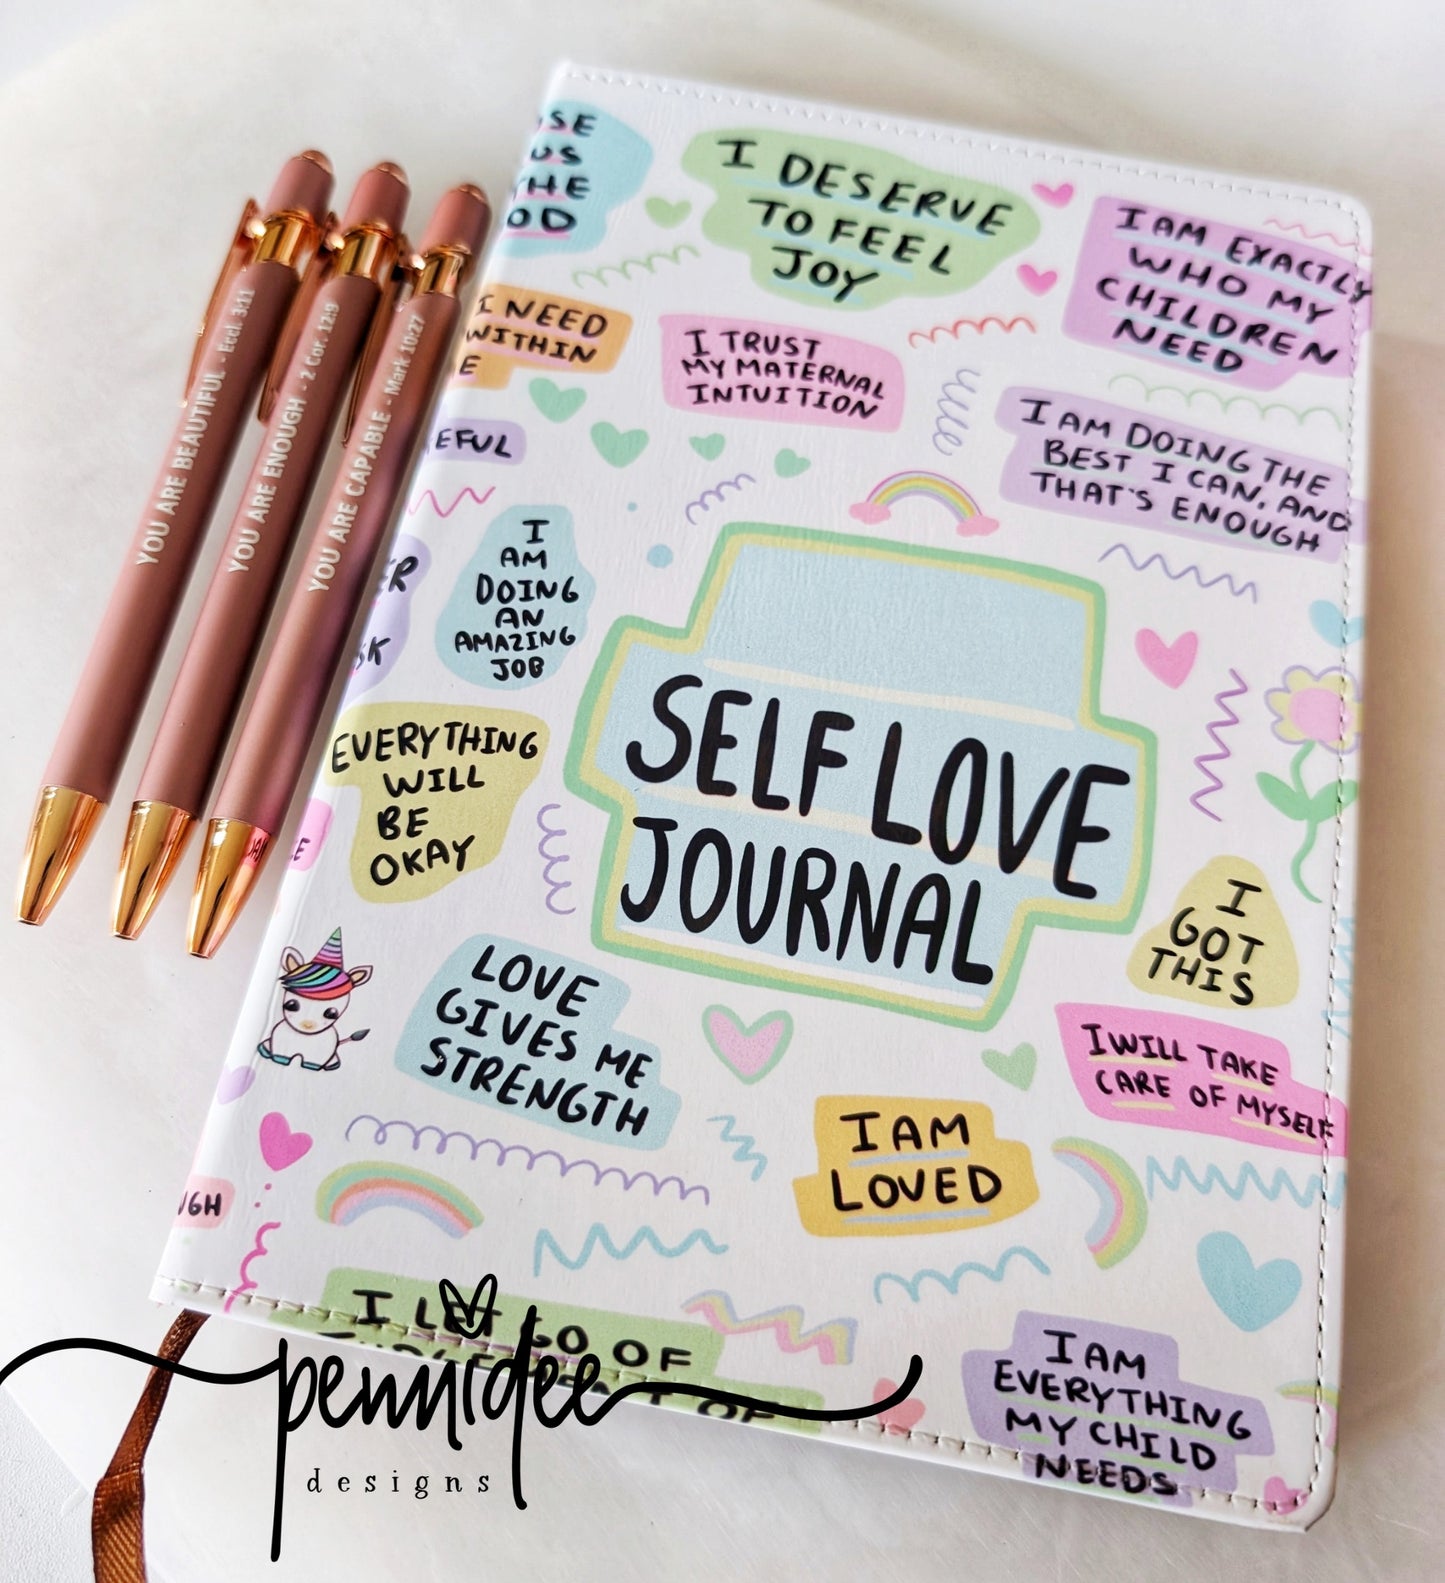 YOU ARE BEAUTIFUL - Eccl. 3:11
YOU ARE ENOUGH - 2 Cor. 12:9
YOU ARE CAPABLE - Mark 10:27
I DESERVE
TO FEEL
JOY
I AM EXACTLY
WHO MY
CHILDREN
NEED
I NEED
WITHIN
I TRUST
MY MATERNAL
INTUITION
I AM DOING THE
BEST I CAN, AND
THAT'S ENOUGH
I
AM
DOING
AN
AMAZING
JOB
SELF LOVE
JOURNAL
EVERYTHING
WILL
BE
OKAY
I
GOT
THIS
LOVE
GIVES ME
STRENGTH
I WILL TAKE
CARE OF MYSELF
I AM
LOVED
I LET GO OF
OF
I AM
EVERYTHING
MY CHILD
NEEDS
pennidee
designs